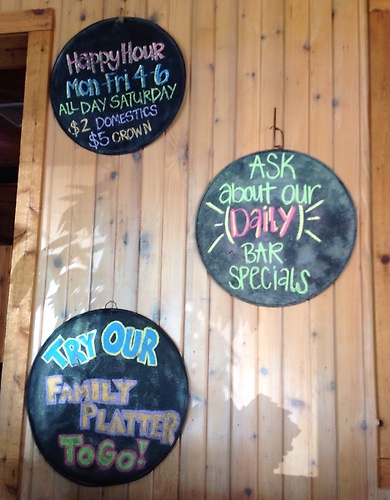 HAPPY HOUR
Mon Fri 4-6
ALL DAY SATURDAY
$2 DOMESTICS
$5 CROWN
ASK
about our
(Daily)
BAR
SPECIALS
TRY OUR
FAMILY
PLATTER
TO GO!